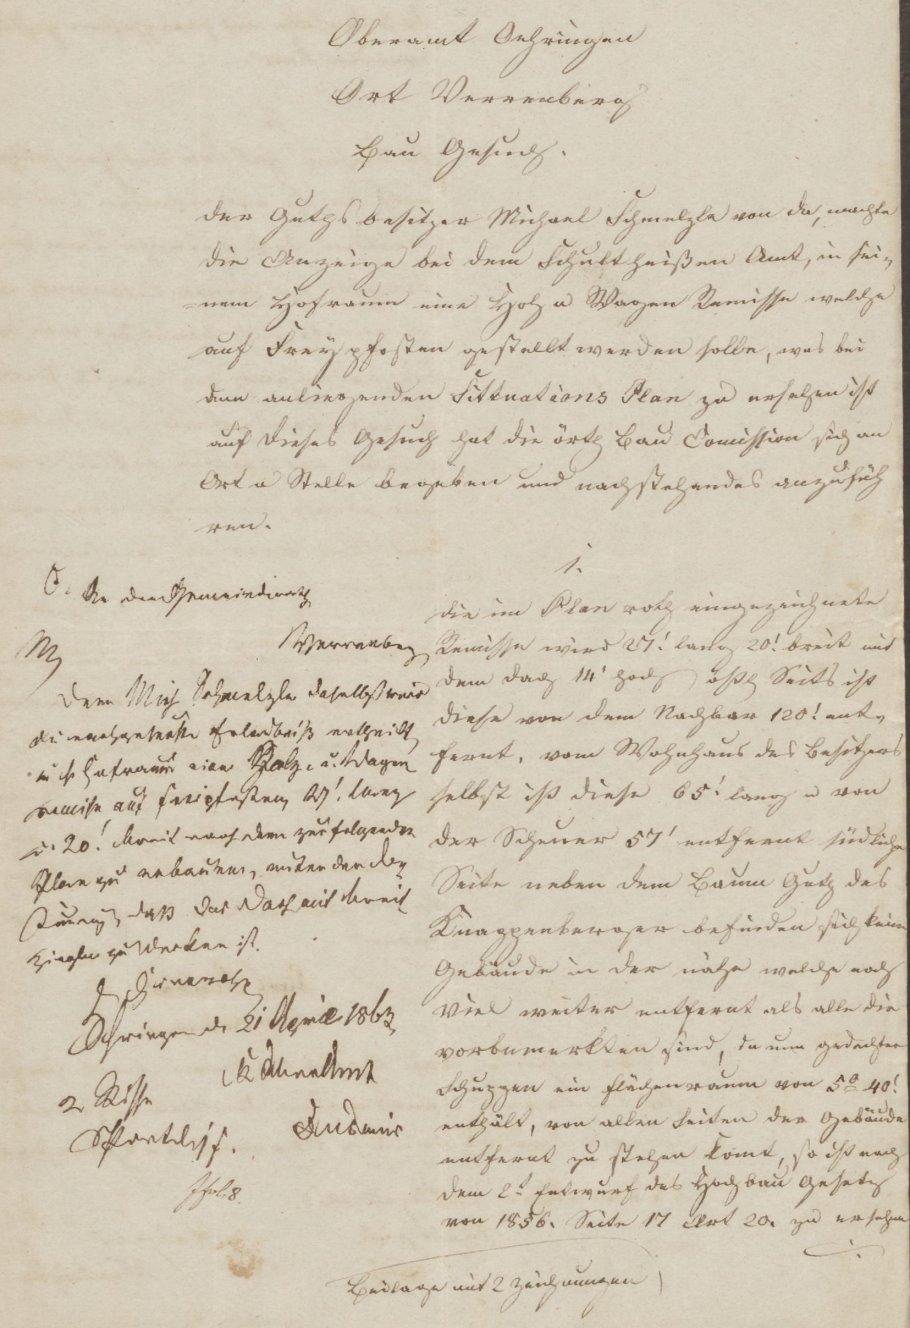 Oberamt Oehringen
Ort Verrenberg
Bau Gesuch.
Der Guthsbesitzer Michael Schmelzle von da, machte
die Anzeige bei dem Schultheißen Amt, in sei-
nem Hofraum eine Holz u Wagen Remisse welche
auf Freypfosten gestellt werden solle, was bei
dem anliegenden Sittuations Plan zu ersehen ist
auf dieses Gesuch hat die örtl Bau Comission sich an
Ort u Stelle begeben und nachstehendes anzufüh
ren.
1.
die im Plan roth eingezeichnete
Remisse wird 27! lang 20! breit mit
dem dach 14' hoch östl Seits ist
diese von dem Nachbar 120! ent-
fernt, vom Wohnhaus des Besitzers
selbst ist diese 65' lang u von
der Scheuer 57' entfernt südliche
Seite neben dem Baum Guth des
Knappenberger befinden sich keine
Gebäude in der nähe welche noch
viel weiter entfernt als alle die
vorbemerkten sind, da nun gedachter
Schuppen ein flächenraum von 5° 40!
enthält, von allen Seiten der Gebäude
entfernt zu stehen komt, so ist nach
dem 2t Entwurf des Hochbau Gesetz
von 1856. Seite 17 Art 20. zu ersehen
Beilage mit 2 Zeichnungen
An den Gemeinderath
Verrenberg
Dem Mich Schmelzle daselbst wird
die nachgesuchte Erlaubniß ertheilt,
in sr Hofraum eine Holz- u. Wagen
remise auf Freipfosten, 27! lang
u. 20! breit nach dem zurfolgenden
Plan zu erbauen, unter der Be
dingung, daß das Dach mit breit
Ziegeln zu decken ist.
Oehringen d. 21 April 1863
K Oberamt
2 Risse
Sportel 1 f.